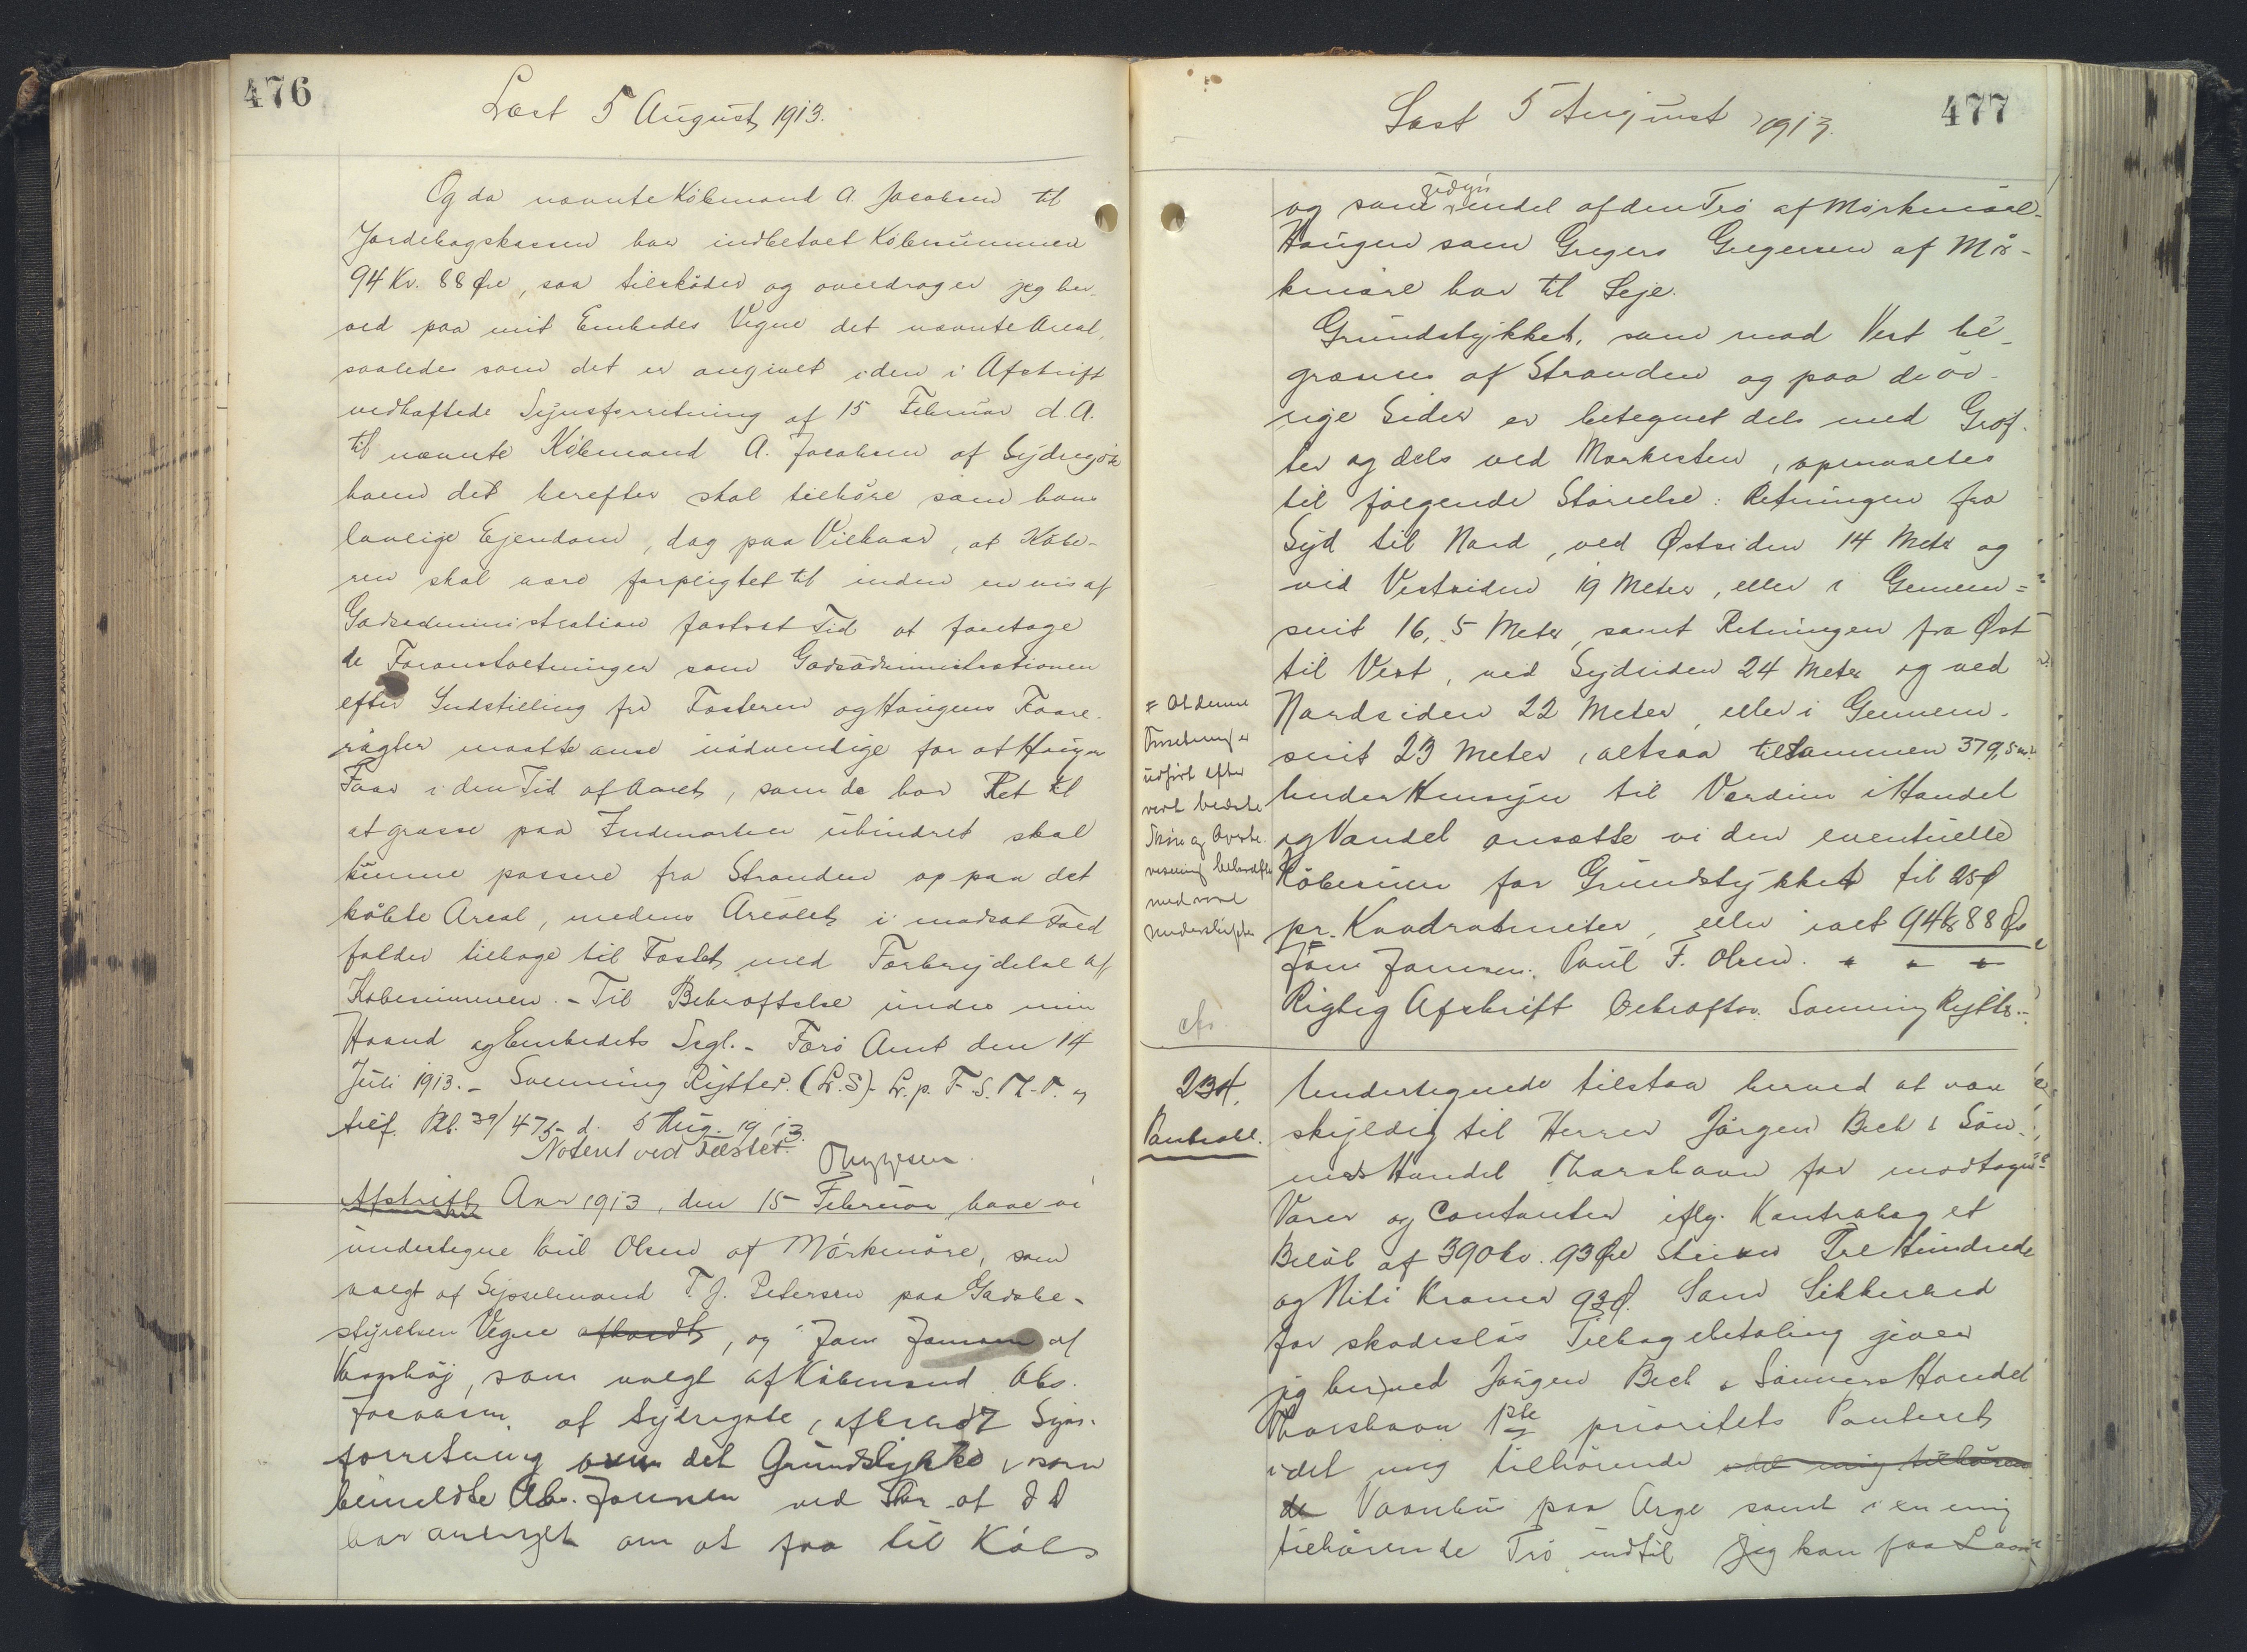 476
Læst 5 August 1913.
Og da nævnte Købmand A. Jacobsen til
Jordebogskassen har indbetalt Købesummen
94 Kr. 88 Øre, saa tilskøder og overdrager jeg her-
ved paa mit Embedes Vegne det nævnte Areal,
saaledes som det er angivet i den i Afskrift
vedhæftede Synsforretning af 15 Februar d. A.
til nævnte Købmand A. Jacobsen af Sydregøte
hvem det herefter skal tilhøre som hans
lovlige Ejendom, dog paa Vilkaar, at Købe-
ren skal være forpligtet til inden en vis af
Godsadministration fastsat Tid at foretage
de Foranstaltninger som Godsadministrationen
efter Indstilling fra Fæsteren og Haugens Faare-
røgter maatte anse nødvendige for at Haugens
Faar i den Tid af Aaret, som de har Ret til
at græsse paa Indmarken uhindret skal
kunne passere fra Stranden op paa det
købte Areal, medens Arealet i modsat Fald
falder tilbage til Fæstet med Fortrydelse af
Købesummen. - Til Bekræftelse under min
Haand og Embedets Segl. - Færø Amt den 14
Juli 1913. - Svenning Rytter. (L.S.)- L. p. F. S. M. V. "
tilf. Pkb. 30/475 d. 5 Aug. 1913.
Noteret ved Fæstet.
Afskrift Aar 1913, den 15 Februar, have vi
undertegne Poul Olsen af Mørkenøre, som
valgt af Sysselmand T. J. Petersen paa Godsbe-
styrelsen Vegne afholdt, og Joen Joensen af
, som valgt af Købmand Abs.
Jacobsen, af Sydregøte, afholdt Syns-
forretning over det Grundstykke, som
bemeldte Abr. Joensen ved Skr. af D D
har ansøgt om at faa til Købs
477
Læst 5 August 1913.
og som udgør endel af den Trø af Mørkenøre-
Haugen som Gregers Gregersen af Mør-
kenøre har til Leje.
Grundstykket, som mod Vest be-
grænses af Stranden og paa de øv-
rige Sider er betegnet dels med Grøf-
ter og dels ved Mærkesten, opmaaltes
til følgende Størrelse: Retningen fra
Syd til Nord, ved Østsiden 14 Meter og
ved Vestsiden 19 Meter, eller i Gennem=
snit 16,5 Meter, samt Retningen fra Øst
til Vest, ved Sydsiden 24 Meter og ved
Nordsiden 22 Meter, eller i Gennem-
snit 23 Meter, altsaa tilsammen 379,5 m²
Under Hensyn til Værdien i Handel
og Vandel ansætte vi den eventuelle
Købesum for Grundstykket til 25 Ø
pr. Kvadratmeter, eller ialt 94 Kr 88 Øre
Joen Joensen. Poul F. Olsen.
Rigtig Afskrift bekræfter. Svenning Rytter.
# At denne
Forretning er
udført efter
vort bedste
Skøn og Overbe-
visning bekræftes
med vore
Underskrifter
234.
Pantobl.
Undertegnede tilstaar herved at være
skyldig til Herrer Jørgen Bech & Søn-
ners Handel Thorshavn for modtagne
Varer og Contanter iflg. Kontrabog et
Beløb af 390 kr. 93 Øre skriver Tre Hundrede
og Niti Kroner 93 Ø. Som Sikkerhed
for skadesløs Tilbagebetaling giver
jeg herved Jørgen Bech & Sønners Handel
Thorshavn 1ste prioritets Panteret
i det mig tilhørende i det mig tilhøren
de Vaanhus paa Arge samt i en mig
tilhørende Trø indtil jeg kan faa Laan